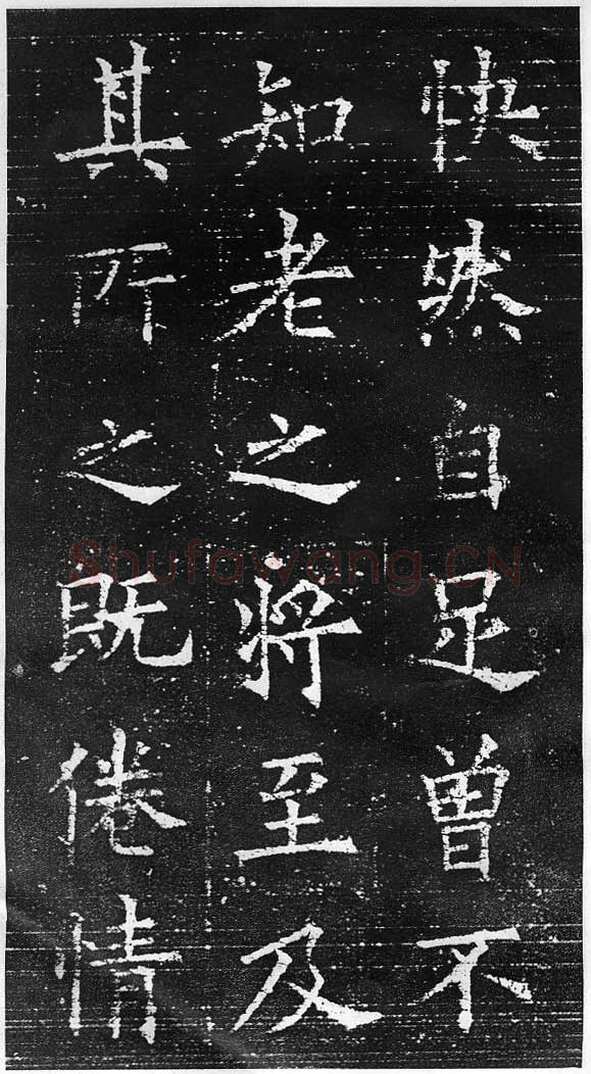 快然自足曽不
知老之将至及
其所之既倦情
Shufawang.CN